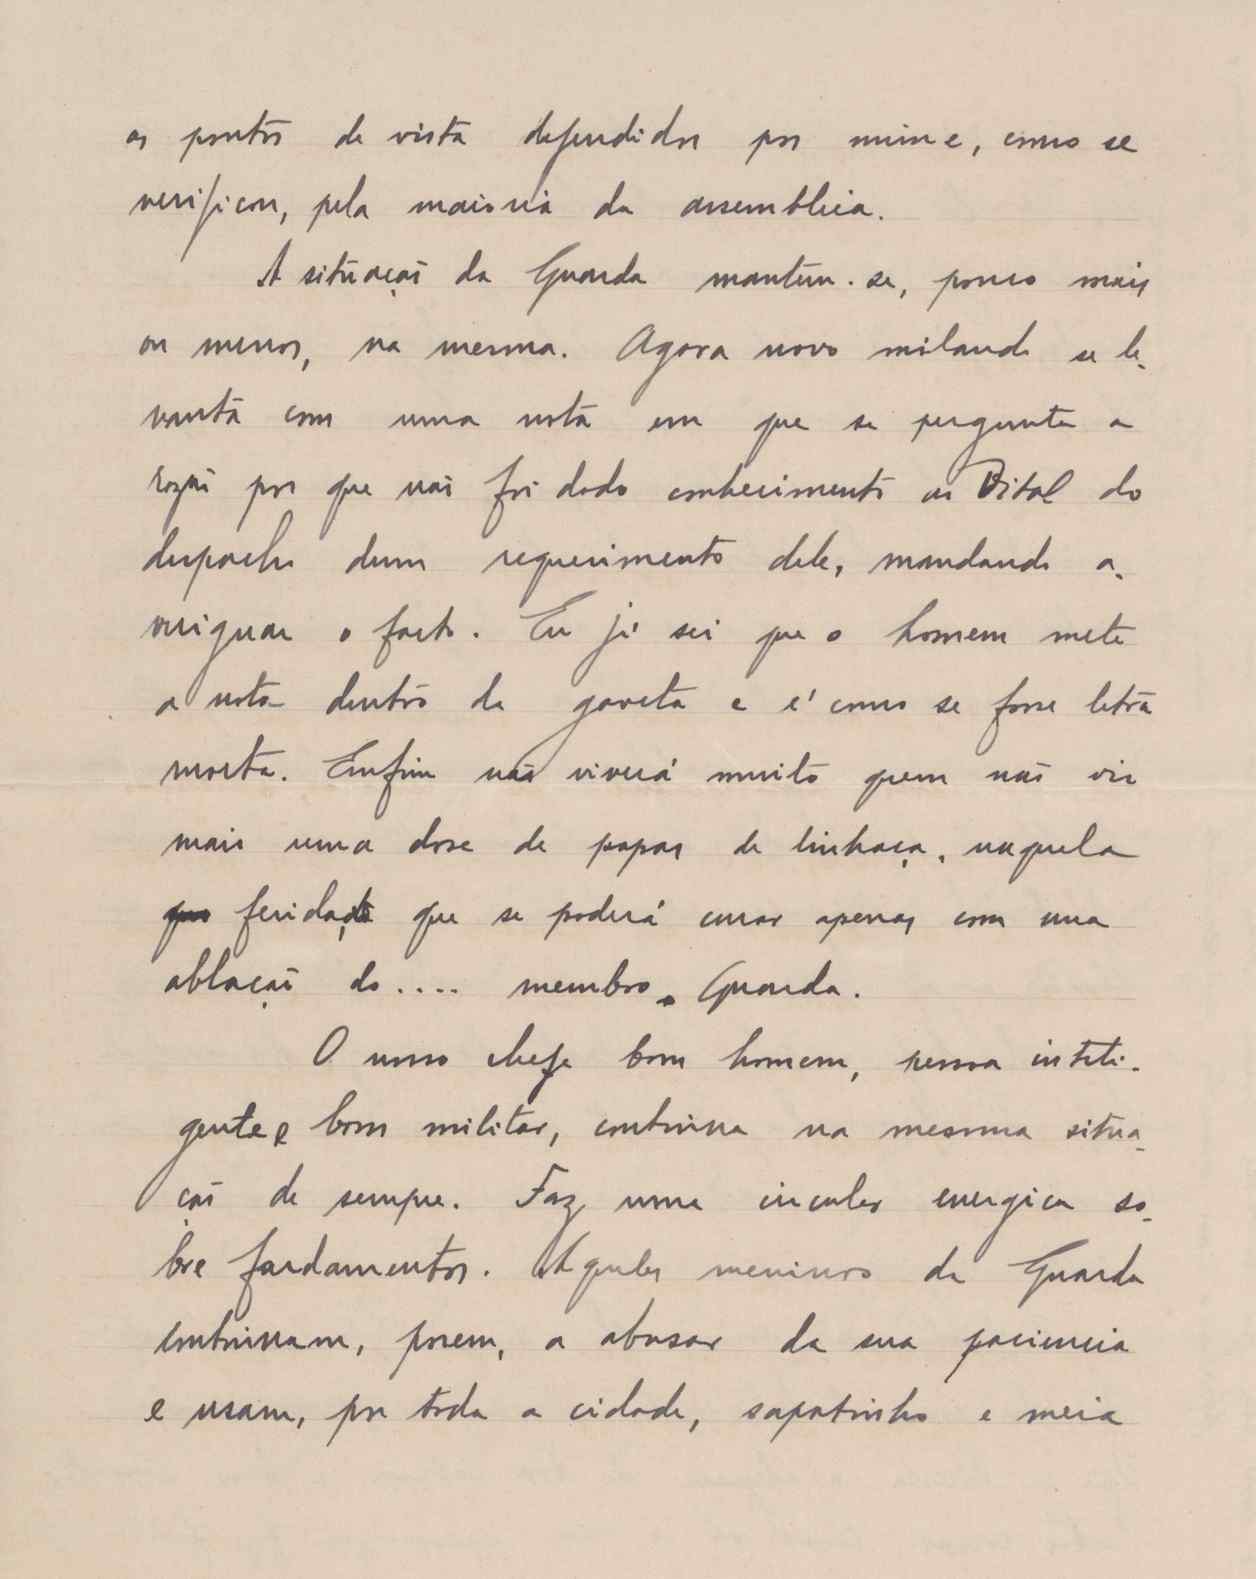 os pontos de vista defendidos por mim e, como se
verificou, pela maioria da assembleia.
A situação da Guarda mantem-se, pouco mais
ou menos, na mesma. Agora novo milando se le-
vanta com uma nota em que se pergunta a
razão por que não foi dado conhecimento ao Vital do
despacho dum requerimento dele, mandando a-
veriguar o facto. Eu já sei que o homem mete
a nota dentro da gaveta e é como se fosse letra
morta. Emfim não viverá muito quem não vir
mais uma dose de papas de linhaça, naquela
ferida que se poderá curar apenas com uma
ablação do.... membro. Guarda.
O nosso chefe bom homem, pessoa inteli-
gente e bom militar, continua na mesma situa-
ção de sempre. Faz uma circular energica so-
bre fardamentos. Aqueles meninos da Guarda
continuam, porem, a abusar da sua paciencia
e usam, por toda a cidade, sapatinho e meia